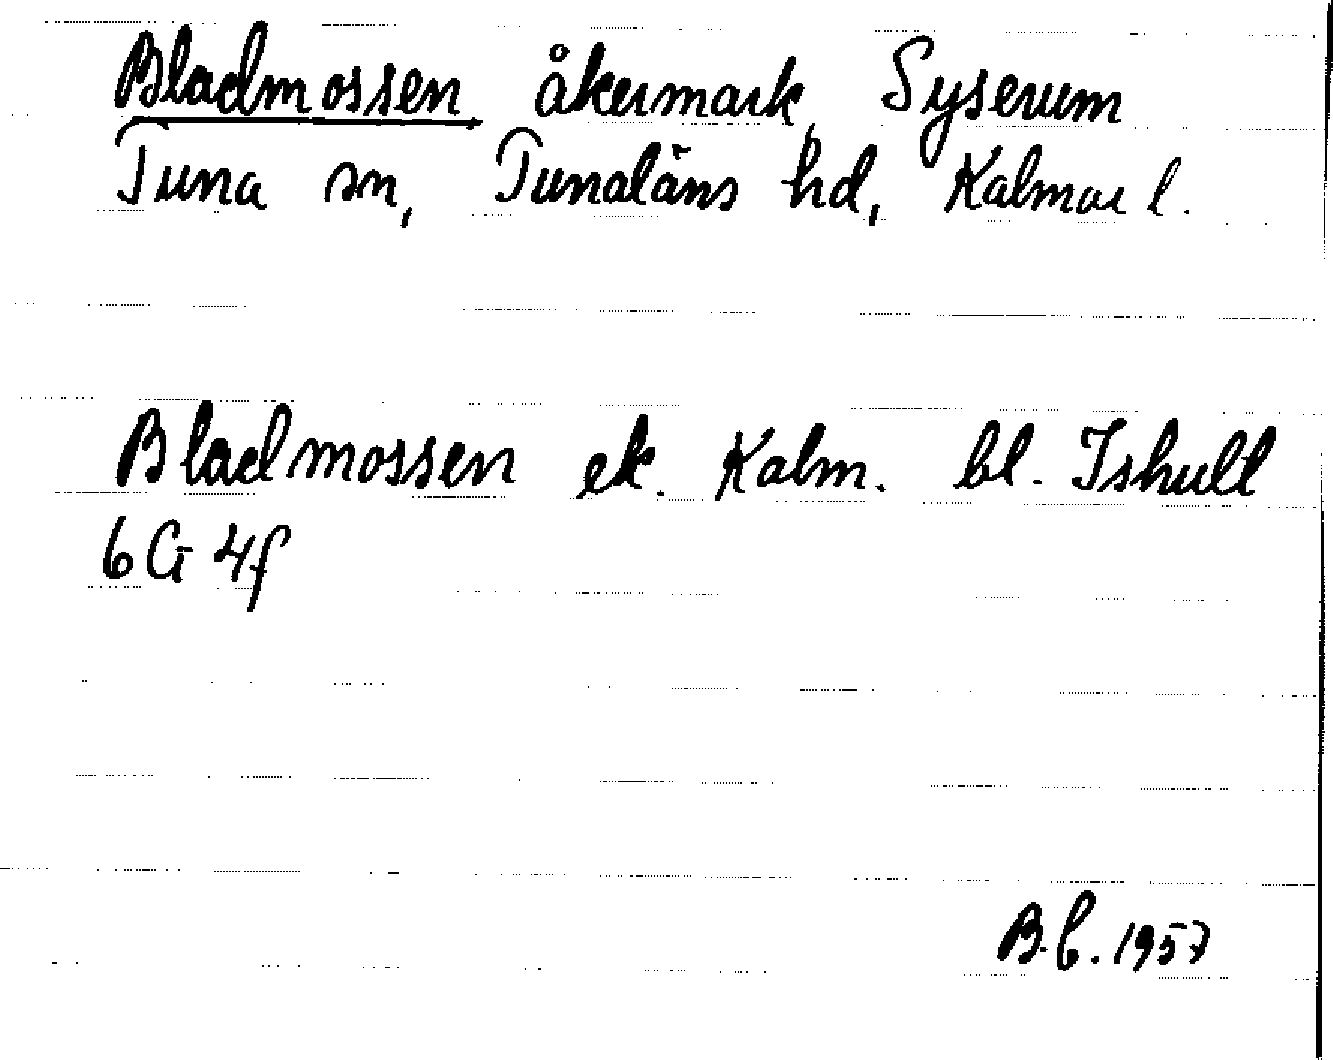 Bladmossen åkermark, Syserum
Tuna sn, Tunaläns hd, Kalmar l.
Bladmossen ek. Kalm. bl. Ishult
6G 4f
B.b. 1957